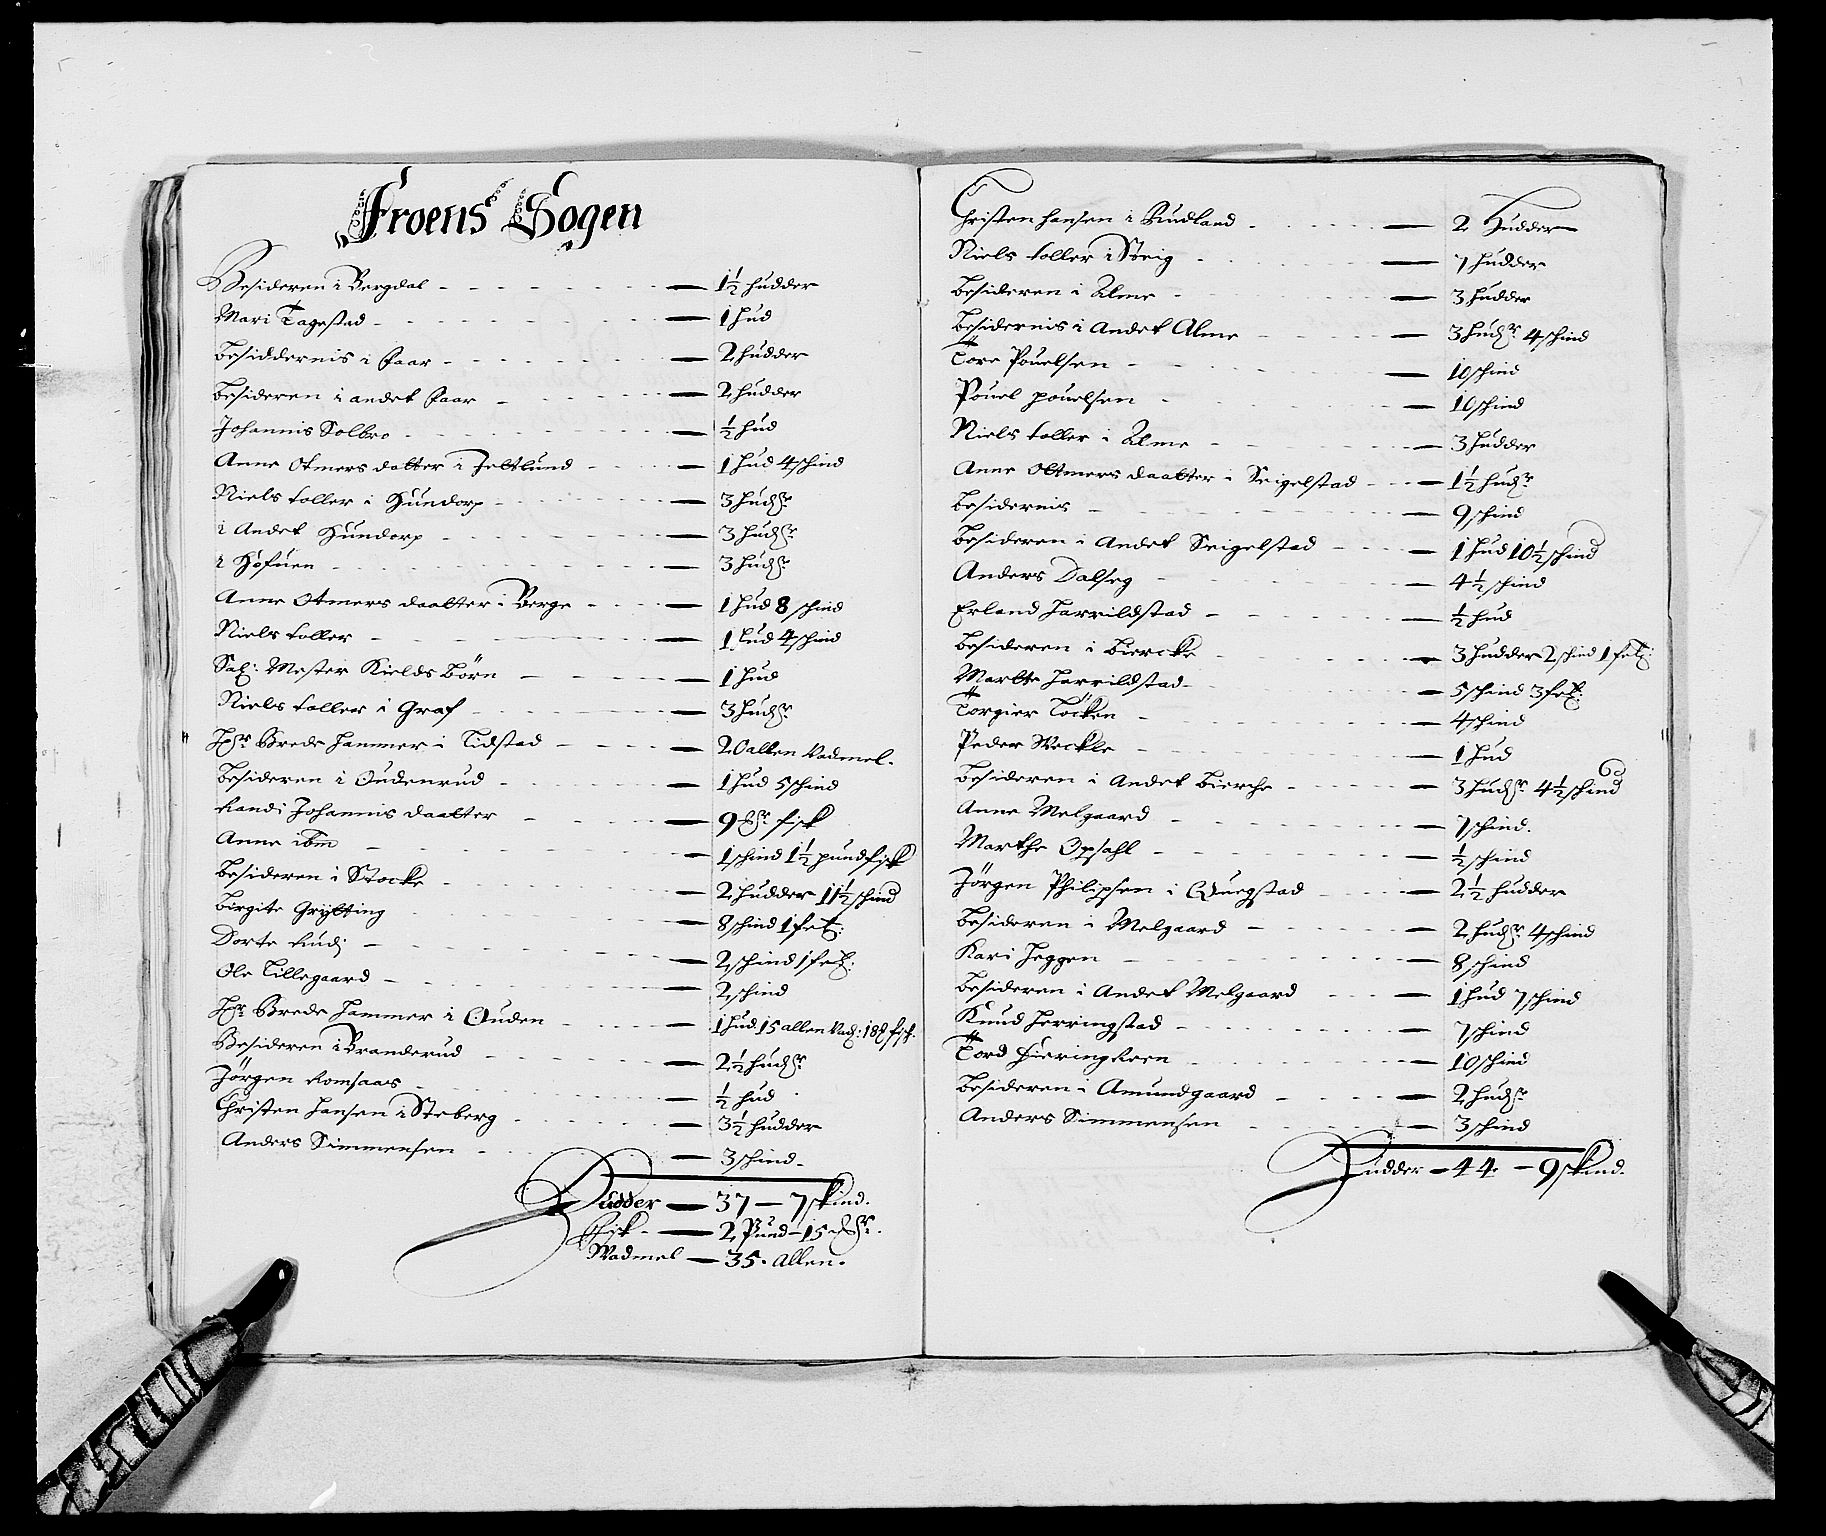 Froens Sogen
Besideren i Bergdal - 1½ hudder
Mari Tagestad - 1 hud
Besiddernis i Faar - 2 hudder
Besideren i andet Faar - 2 hudder
Johannis Solbro - ½ hud
Anne Otmers datter i Jeltlund - 1 hud 4 schind
Niels toller i Hundorp - 3 hudr
i Andet Hundorp - 3 hudr
i Hofuen - 3 hudr
Anne Otmers daatter i Berge - 1 hud 8 schind
Niels toller - 1 hud 4 schind
Sal: Mester Kields Börn - 1 hud
Niels toller i Graf - 3 hudr
Hr Brede hammer i Tidstad - 20 allen Vadmel.
Besideren i Oudenrud - 1 hud 5 schind
Randi Johannis daatter - 9 fisk
Anne ibm - 1 schind 1½ pund fisk
Besideren i Stocke - 2 hudder 11½ schind
Birgite Grytting - 8 schind 1 fet:
Dorte - 2 schind 1 fet:
Ole Lillegaard - 2 schind
Hr Brede hammer i Ouden - 1 hud 15 allen Vad: 18 fisk.
Besideren i Branderud - 2½ hudr
Jörgen Romsaas - ½ hud
Christen Hansen i Steberg - 3½ hudder
Anders Simmensen - 3 schind.
Hudder - 37 - 7 skind.
Fisk - 2 Pund - 15
Wadmel - 35. Allen.
Christen hansen i Rudland - 2 Hudder
Niels toller i Steig - 7 hudder
Besideren i Alme - 3 hudder
Besidernis i Andet Alme - 3 hudr 4 schind
Tore Pouelsen - 10 schind
Pouel pouelsen - 10 schind
Niels toller i Alme - 3 hudder
Anne Oltmers daatter i Seigelstad - 1½ hudr
Besidernis - 9 schind
Besideren i Andet Seigelstad - 1 hud 10½ schind
Anders Dalseg - 4½ schind
Erland Harrildstad - ½ hud
Besideren i Biercke - 3 hudder 2 schind 1 fet:
Marte Harrildstad - 5 schind 3 fet:
Torgier Töcken - 4 schind
Peder Weckle - 1 hud
Besideren i Andet Bierche - 3 hudr 4½ schind
Anne Melgaard - 7 schind.
Marthe Opsahl - ½ schind
Jörgen Philipsen i Quegstad - 2½ hudder
Besideren i Melgaard - 2 hudr 4 schind
Kari Heggen - 8 schind
Besideren i Andet Melgaard - 1 hud 7 schind
Knud Herringstad - 7 schind
Tord - 10 schind
Besideren i Amundgaard - 2 hudr
Anders Simmensen - 3 schind
Hudder - 44 - 9 skind.